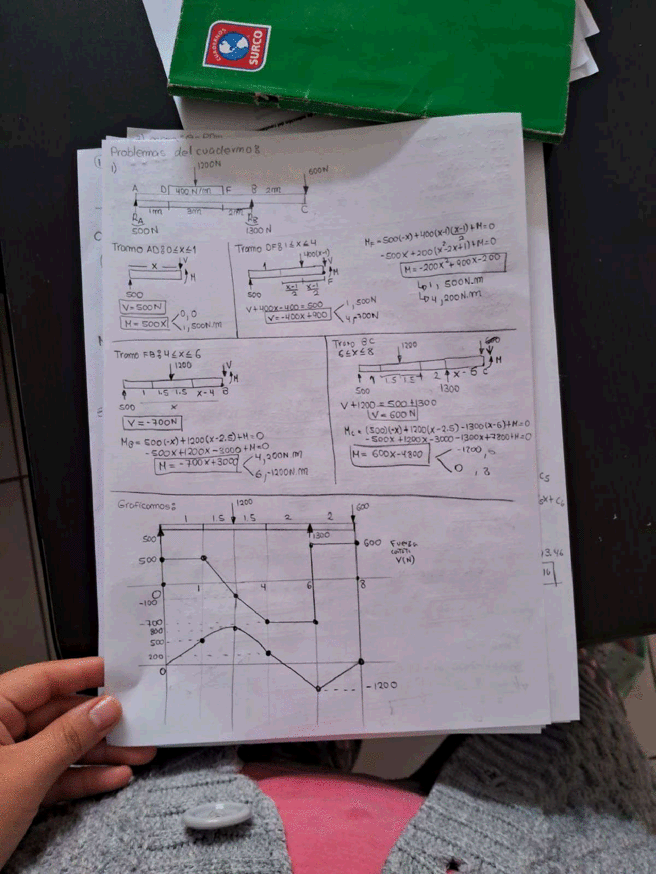 CUADERNOS
SURCO
Problemas del cuaderno 8
1)
1200N
600N
A D 400 N/m F B 2m
C
RA
RB
1m 3m 2m
500N
1300 N
Tramo AD: 0≤x≤1
x
V
M
500
V = 500N
M = 500X
0, 0
1, 500N.m
Tramo DF: 1≤x≤4
400(x-1)
V
M
1
x-1/2 x-1/2 F
500
V+400x-400 = 500
V = -400x+900
1, 500N
4, -700N
MF = 500(-x) + 400(x-1)(x-1)/2 + M = 0
-500x + 200(x²-2x+1) + M = 0
M = -200x² + 900x - 200
1, 500N.m
4, 200N.m
Tramo FB: 4≤x≤6
1200
V
M
500 1 1.5 1.5 x-4 B
x
V = -700N
MB = 500(-x) + 1200(x-2.5) + M = 0
-500x + 1200x - 3000 + M = 0
M = -700x + 3000
4, 200N.m
6, -1200N.m
Tramo BC
6≤x≤8
1200
600
V
M
1.5 1.5 2 x-6 C
500
1300
V + 1200 = 500 + 1300
V = 600N
Mc = (500)(-x) + 1200(x-2.5) - 1300(x-6) + M = 0
-500x + 1200x - 3000 - 1300x + 7800 + M = 0
M = 600x - 4800
-1200, 6
0, 8
Graficamos:
1200
600
1 1.5 1.5 2 2
500
1300
600
Fuerza
cortante
V(N)
500
0 1 4 6 8
-100
-700
800
500
200
0
-1200